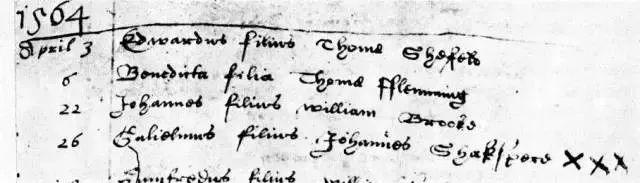 1564
April 3 Edwardus filius Thome Shefeld
6 Benedicta filia Thome fflemming
22 Johannes filius William Brooks
26 Gulielmus filius Johannes Shakspere XXX
filius